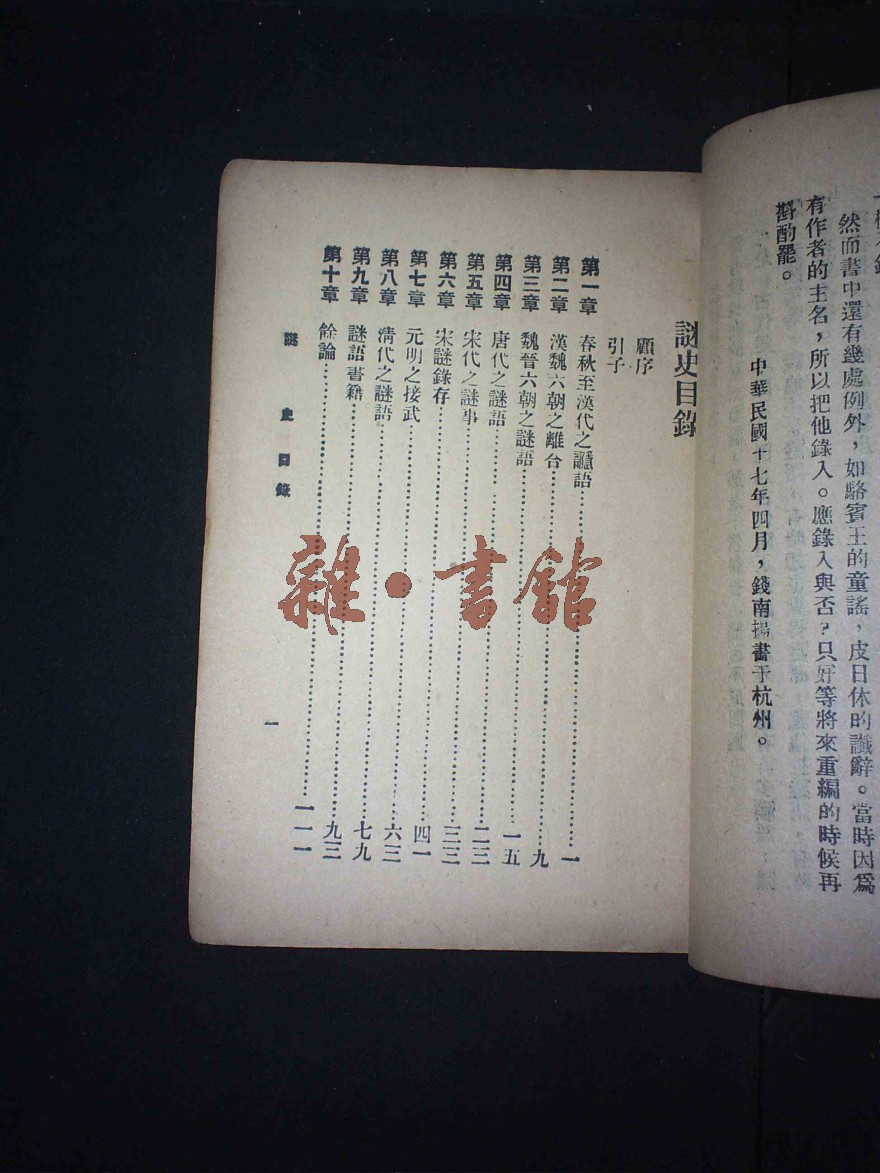 然而書中還有幾處例外，如駱賓王的童謠，皮日休的讖辭。當時因為
有作者的主名，所以把他錄入。應錄入與否？只好等將來重編的時候再
斟酌罷。
中華民國十七年四月，錢南揚書于杭州。
謎史目錄
顧序
引子
第一章 春秋至漢代之讔語……一
第二章 漢魏六朝之離合……九
第三章 魏晉六朝之謎語……一五
第四章 唐代之謎語……二三
第五章 宋代之謎事……三三
第六章 宋謎錄存……四一
第七章 元明之接武……六三
第八章 清代之謎語……七九
第九章 謎語書籍……九三
第十章 餘論……一一一
謎史目錄
一
雜·書館